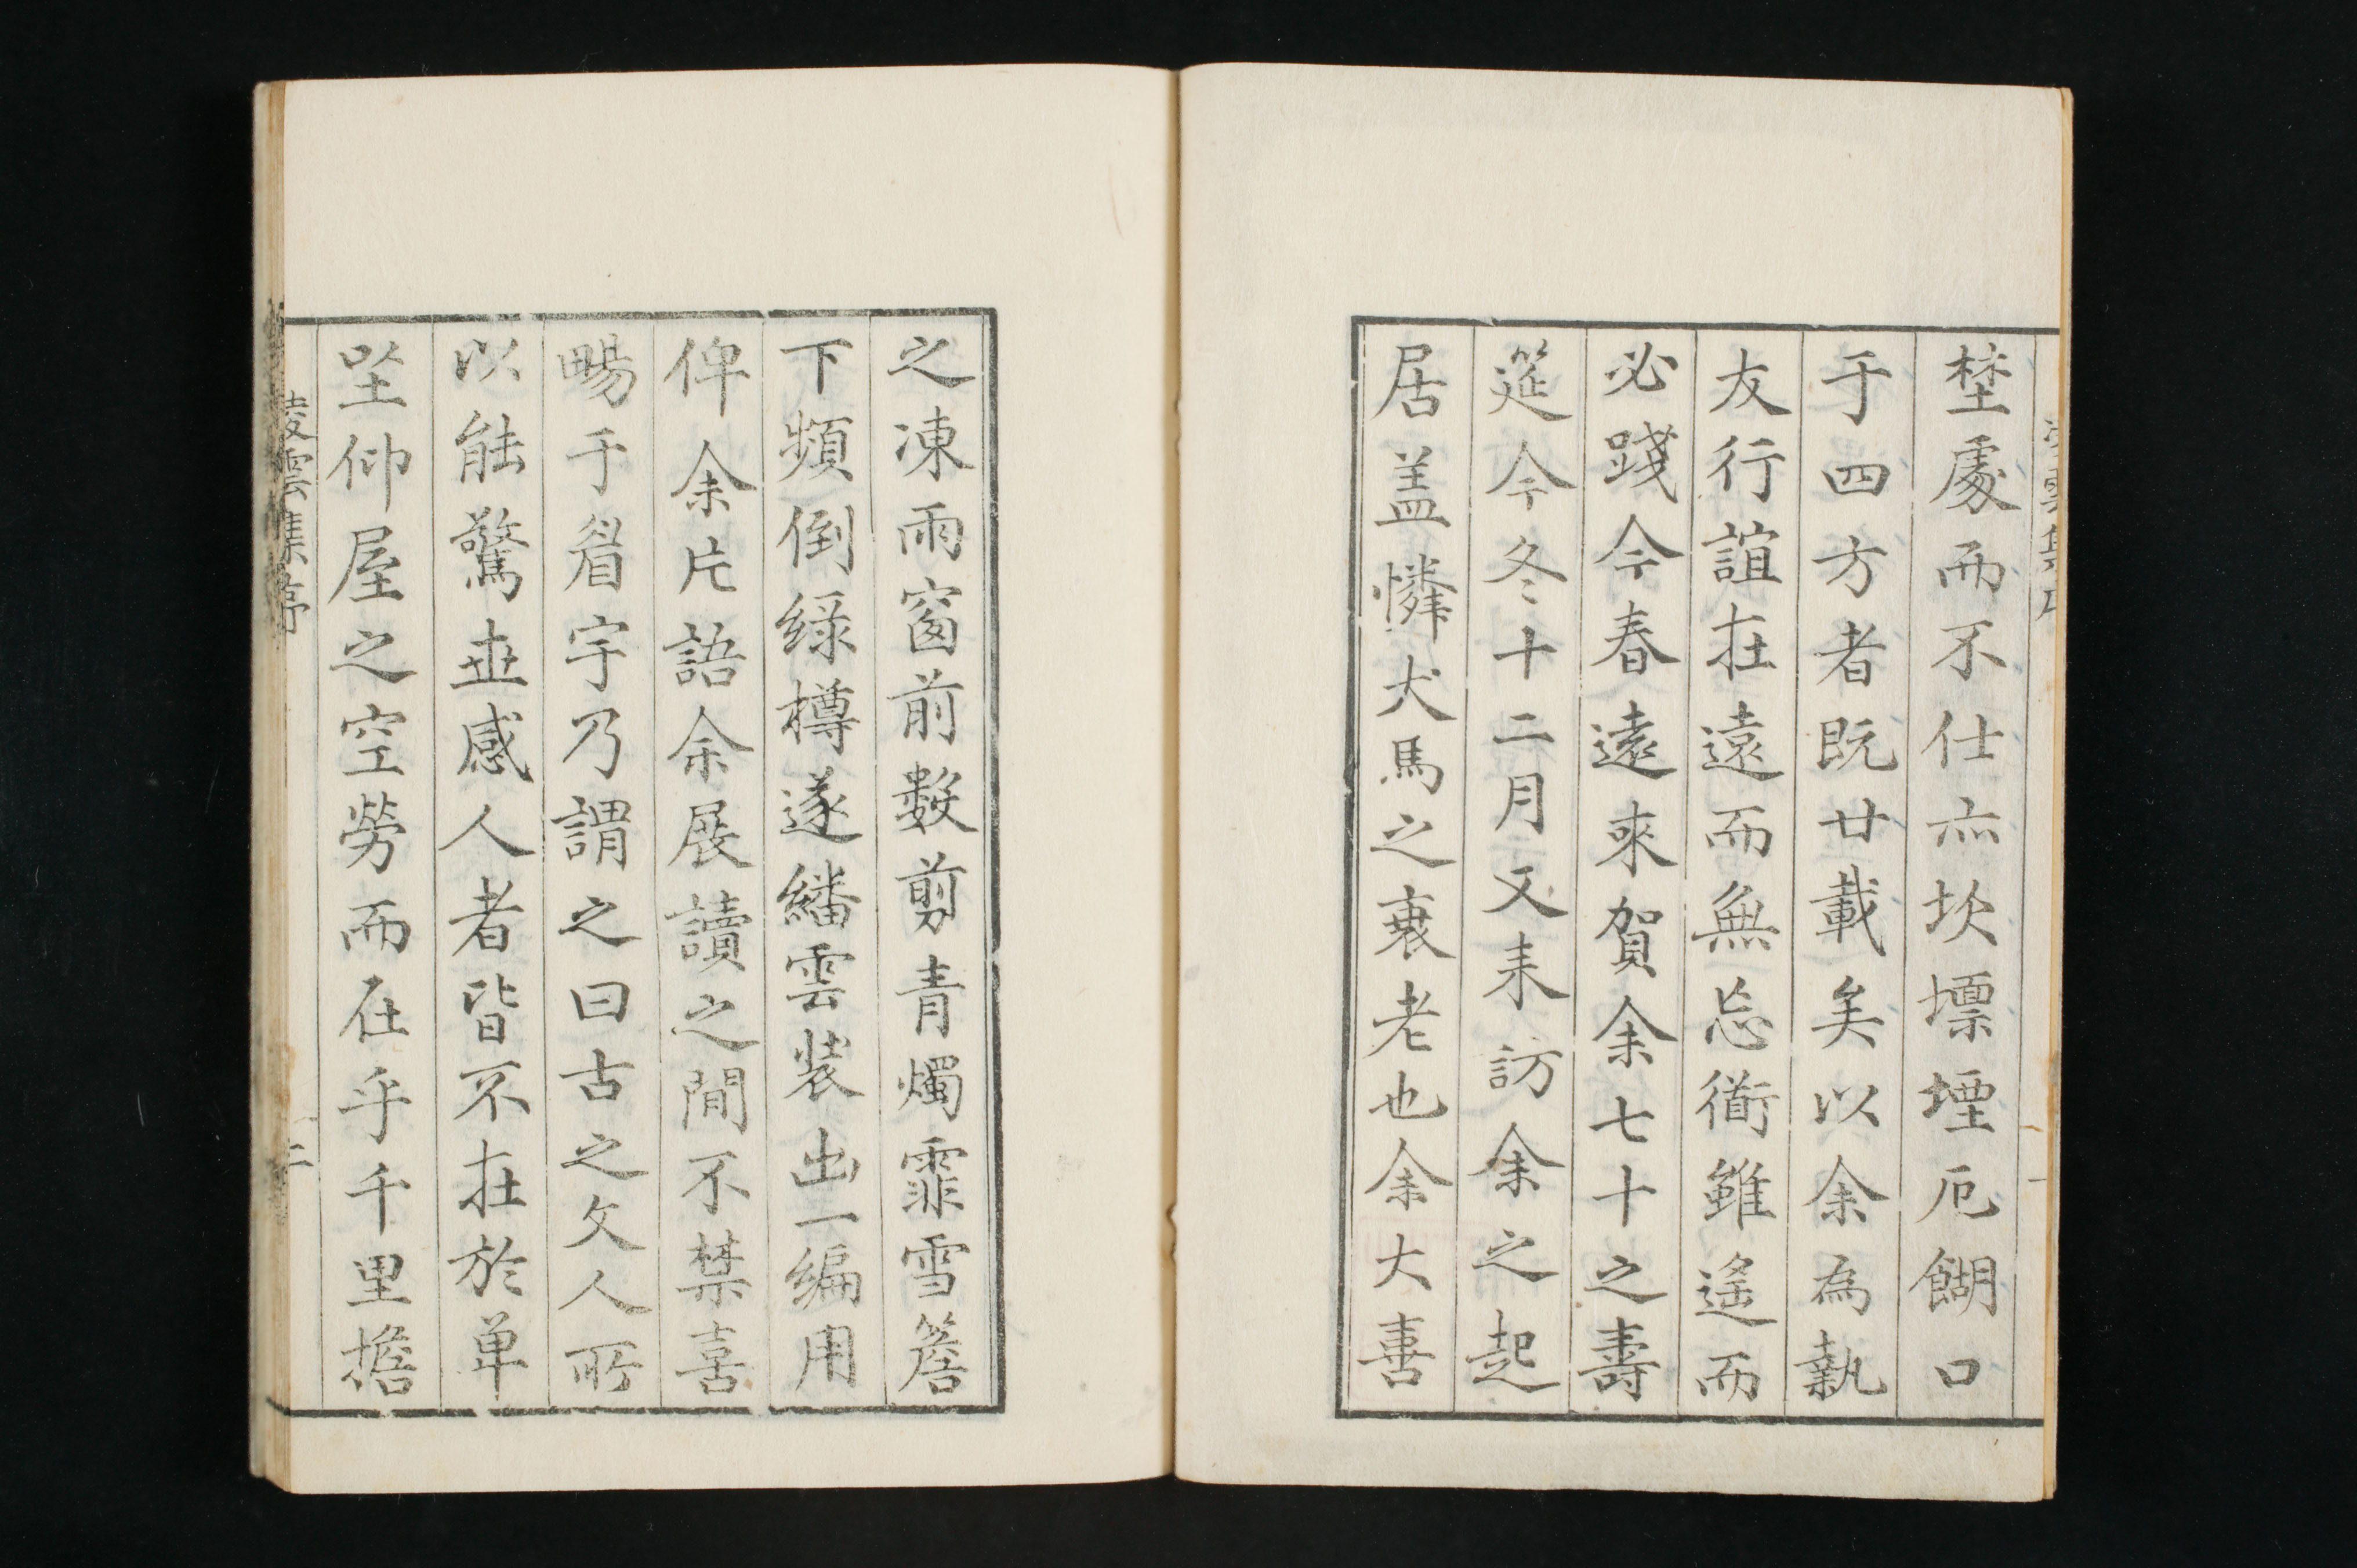 埜處而不仕亦坎壈堙厄餬口
于四方者既廿載矣以余為執
友行誼在遠而無忘衜雖遙而
必踐今春遠來賀余七十之壽
筵今冬十二月又来訪余之起
居盖憐犬馬之衰老也余大喜
之凍雨窗前数剪青燭霏雪簷
下頻倒綠樽遂繙雲裝出一編用
俾余片語余展讀之間不禁喜
暢于眉宇乃謂之曰古之文人所
以能驚世感人者皆不在於单
坐仰屋之空勞而在乎千里擔
凌雲集序
二